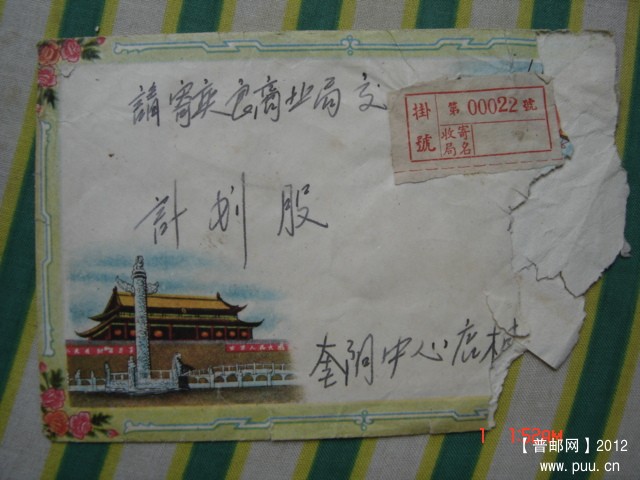 請寄英良商业局交
掛號
第 00022 號
收寄局名
計划股
奎阴中心店
【普邮网】2012
www.puu.cn